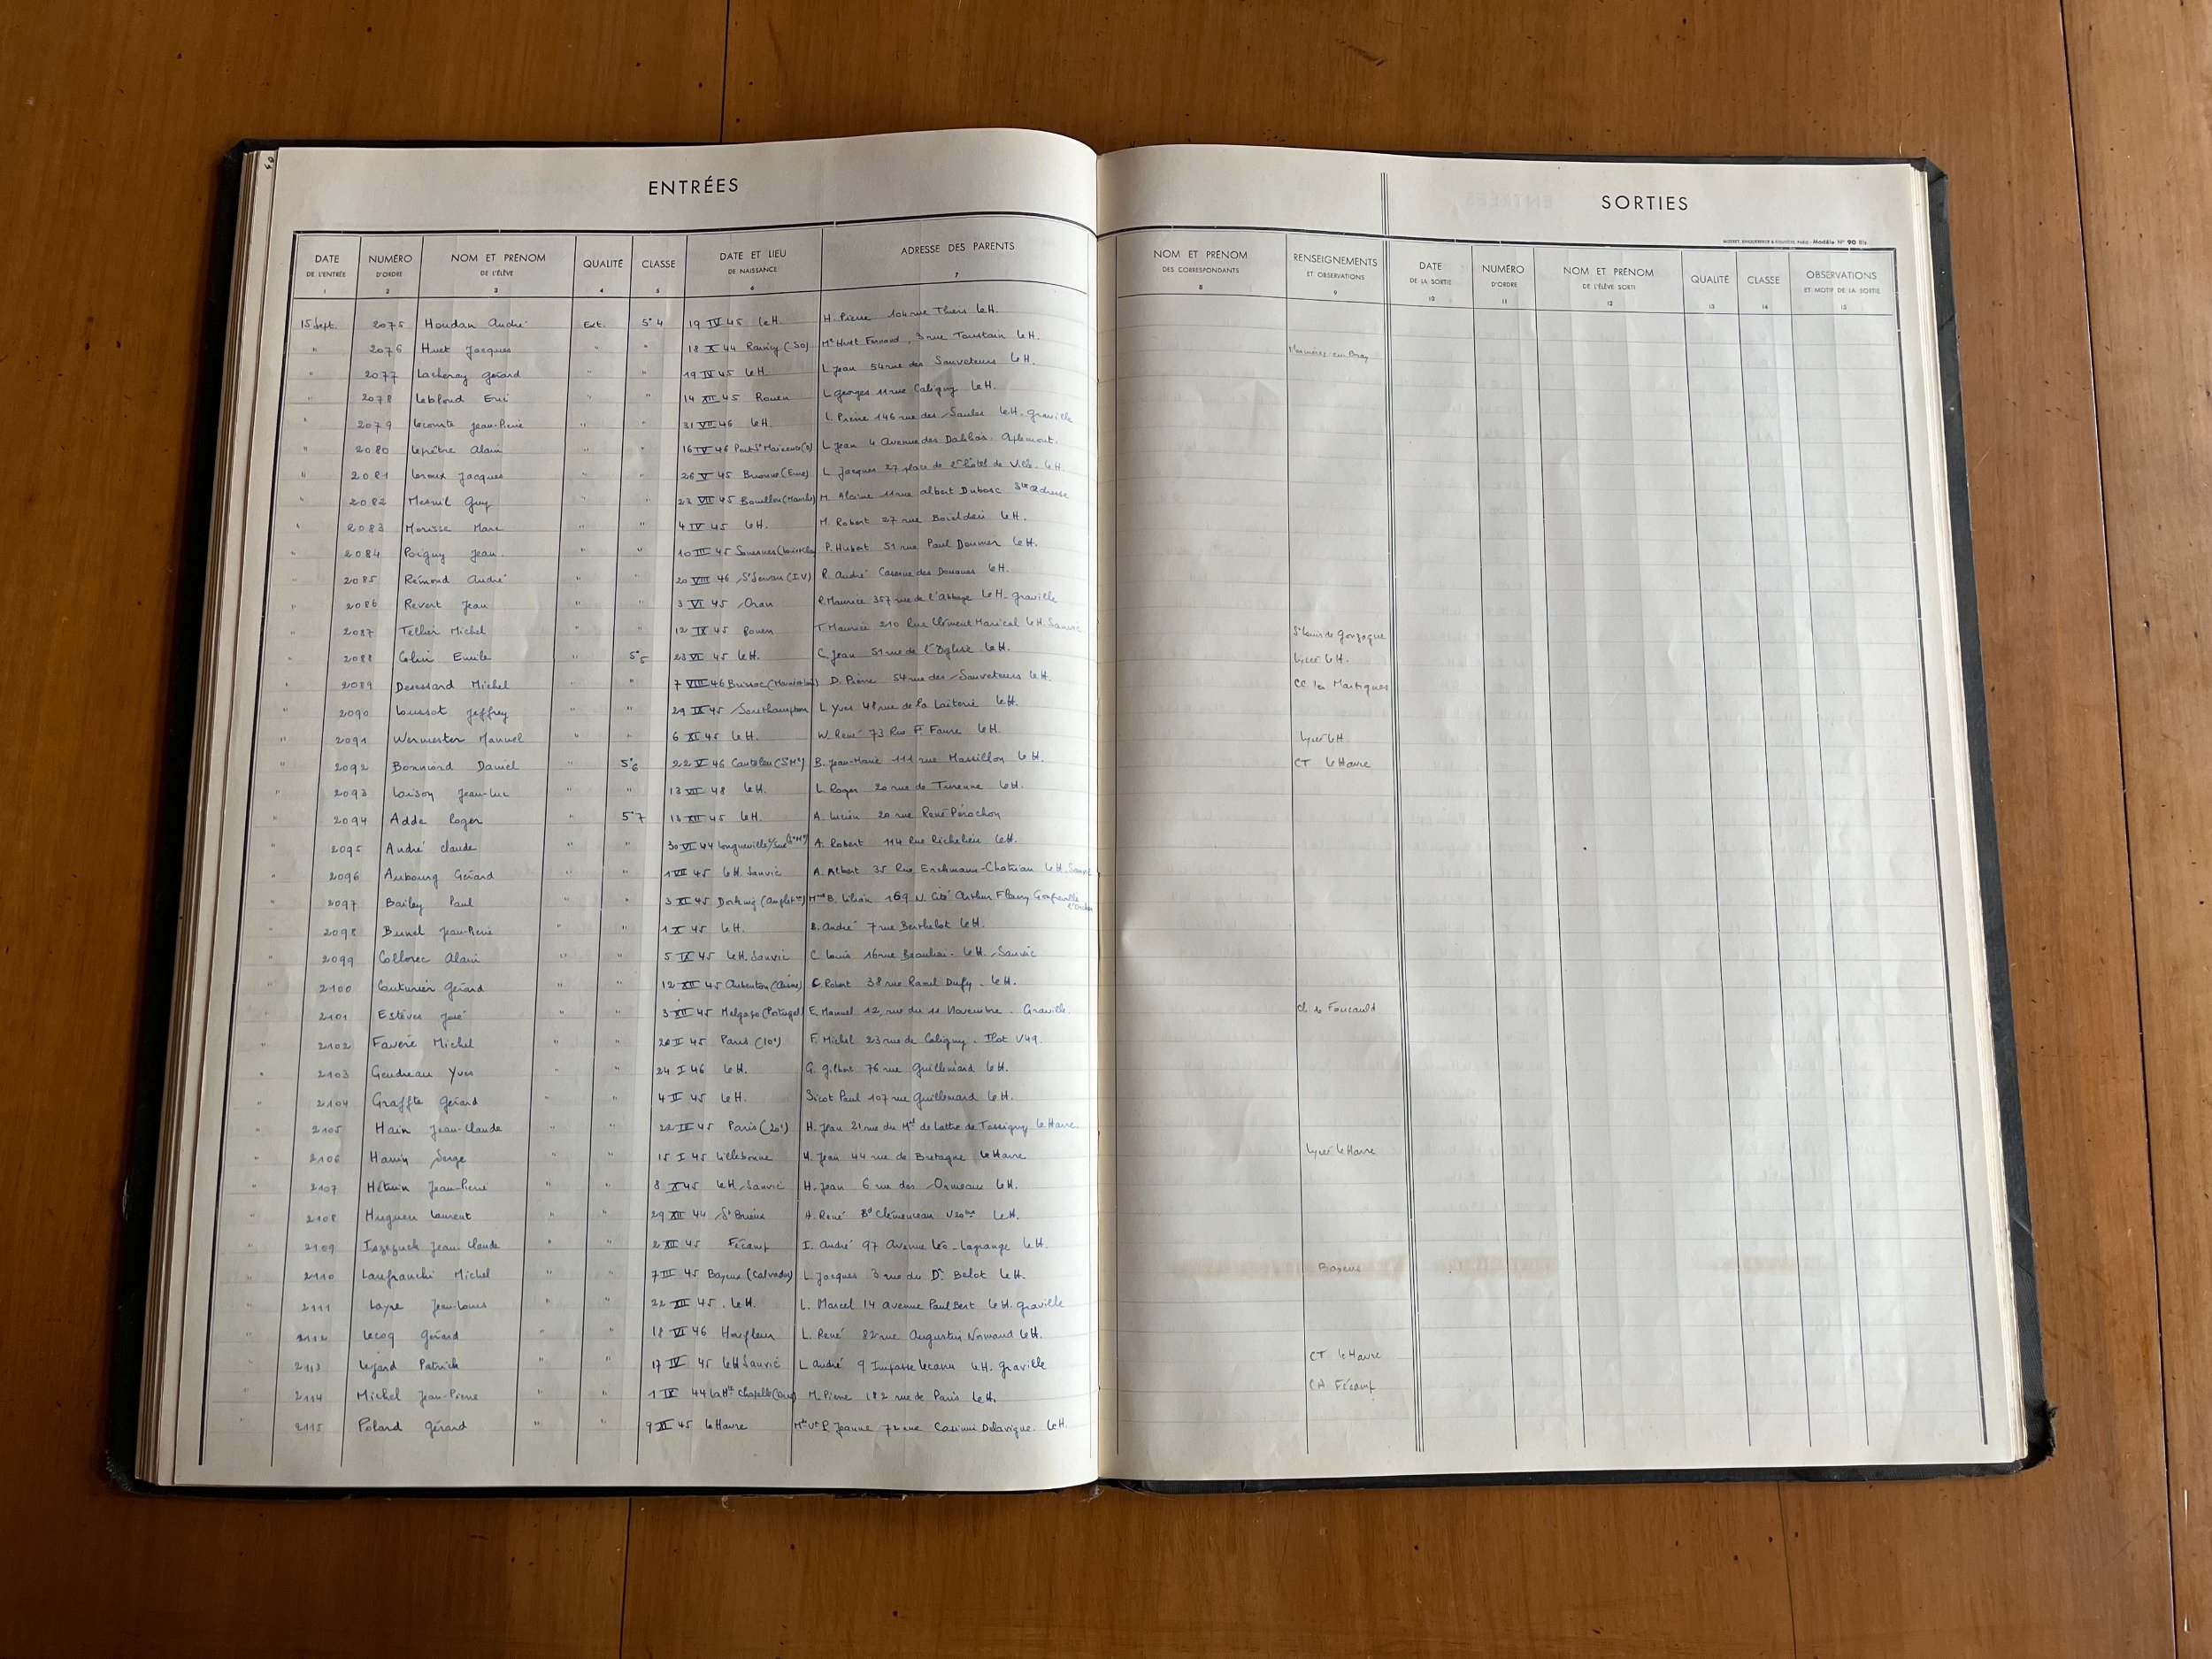 ENTRÉES
SORTIES
DATE DE L'ENTRÉE 1 NUMÉRO D'ORDRE 2 NOM ET PRÉNOM DE L'ÉLÈVE 3 QUALITÉ 4 CLASSE 5 DATE ET LIEU DE NAISSANCE 6 ADRESSE DES PARENTS 7 NOM ET PRÉNOM DES CORRESPONDANTS 8 RENSEIGNEMENTS ET OBSERVATIONS 9 DATE DE LA SORTIE 10 NUMÉRO D'ORDRE 11 NOM ET PRÉNOM DE L'ÉLÈVE SORTI 12 QUALITÉ 13 CLASSE 14 OBSERVATIONS ET MOTIF DE LA SORTIE 15
Modèle N° 90 Bis
15 Sept. 2075 Houdan André Ext. 5e4 19 IV 45 Le H. H. Pierre 104 rue Thiers Le H.
" 2076 Huet Jacques " " 18 X 44 Raincy (SO) Me Huet Fernand, 3 rue Toustain Le H.
" 2077 Lacheray Gérard " " 19 IV 45 Le H. L Jean 54 rue des Sauveteurs Le H.
" 2078 Leblond Eric " " 14 XII 45 Rouen L Georges 11 rue Caligny Le H.
" 2079 Lecomte Jean-Pierre " " 31 VII 46 Le H. L. Pierre 146 rue des Saules Le H. Graville
" 2080 Leprêtre Alain " " 16 IV 46 Pont Ste Maxence L Jean 4 Avenue des Dahlias. Aplemont.
" 2081 Leroux Jacques " " 26 V 45 Brionne (Eure) L Jacques 27 place de l'Hôtel de Ville. Le H
" 2082 Mesnil Guy " " 23 VII 45 Bouillon (Manche) M. 11 rue Albert Dubosc Ste Adresse
" 2083 Morisse Marc " " 4 IV 45 Le H. M. Robert 27 rue Boieldieu Le H.
" 2084 Poigny Jean " " 10 III 45 P. Hubert 51 rue Paul Doumer Le H.
" 2085 Rémond André " " 20 VIII 46 St Servan (I.V) R. André Caserne des Douanes Le H.
" 2086 Revert Jean " " 3 VI 45 Oran R. Maurice 357 rue de l'Abbaye Le H. Graville
" 2087 Tellier Michel " " 12 IX 45 Rouen T. Maurice 210 Rue Clément Marical Le H. Sanvic St Louis de Gonzague
" 2088 Colin Emile " 5e5 23 VI 45 Le H. C. Jean 51 rue de l'Eglise Le H. Lycée Le H.
" 2089 Desessard Michel " " 7 VIII 46 Brissac D. Pierre 54 rue des Sauveteurs Le H. CC les Martigues
" 2090 Loussot Jeffrey " " 29 IX 45 Southampton L Yves 48 rue de la Laiterie Le H.
" 2091 Wermester Manuel " " 6 XI 45 Le H. W. René 73 Rue F. Faure Le H. Lycée Le H
" 2092 Bonniord Daniel " 5e6 22 V 46 Canteleu (S.Me) B. Jean-Marie 111 rue Massillon Le H. CT Le Havre
" 2093 Loison Jean-Luc " " 13 VII 48 Le H. L. Roger 20 rue de Turenne Le H.
" 2094 Adde Roger " 5e7 13 XII 45 Le H. A. Lucien 20 rue René Pérochon
" 2095 André Claude " " 30 VI 44 Longueville A. Robert 114 Rue Richelieu Le H.
" 2096 Aubourg Gérard " " 1 VII 45 Le H. Sanvic A. Albert 35 Rue Erckmann-Chatrian Le H. Sanvic
" 2097 Bailey Paul " " 3 XI 45 Dorking (Anglet) Mme B. Lilian 169 N. Cité Arthur Fleury Gonfreville l'Orcher
" 2098 Bunel Jean-Pierre " " 1 X 45 Le H. B. André 7 rue Berthelot Le H.
" 2099 Collorec Alain " " 5 IX 45 Le H. Sanvic C Louis 16 rue Beaulieu. Le H. Sanvic
" 2100 Couturier Gérard " " 12 XII 45 Aubenton (Aisne) C Robert 38 rue Raoul Dufy. Le H.
" 2101 Estèves José " " 3 XII 45 Melgaço (Portugal) E. Manuel 12, rue du 11 Novembre. Graville. Ch de Foucauld
" 2102 Faveré Michel " " 20 II 45 Paris (10e) F. Michel 23 rue de Caligny. Ilot V49.
" 2103 Gendreau Yves " " 24 I 46 Le H. G. Gilbert 76 rue Guillemard Le H.
" 2104 Graffte Gérard " " 4 II 45 Le H. Sicot Paul 107 rue Guillemard Le H.
" 2105 Hain Jean-Claude " " 22 II 45 Paris (20e) H. Jean 21 rue du Mal de Lattre de Tassigny Le Havre.
" 2106 Hanin Serge " " 15 I 45 Lillebonne H. Jean 44 rue de Bretagne Le Havre Lycée Le Havre
" 2107 Hétuin Jean-Pierre " " 8 X 45 Le H. Sanvic H. Jean 6 rue des Ormeaux Le H.
" 2108 Huguen Laurent " " 29 XII 44 St Brieux H. René Bd Clémenceau Le H.
" 2109 Jean-Claude " " 2 XII 45 Fécamp I. André 97 Avenue Léo-Lagrange Le H.
" 2110 Lanfranchi Michel " " 7 III 45 Bayeux (Calvados) L. Jacques 3 rue du Dr Belot Le H. Bayeux
" 2111 Layre Jean-Louis " " 22 XII 45. Le H. L. Marcel 14 avenue Paul Bert Le H. Graville
" 2112 Lecoq Gérard " " 18 VI 46 Honfleur L. René 82 rue Augustin Normand Le H.
" 2113 Lejard Patrick " " 17 IV 45 Le H Sanvic L André 9 Impasse Lecanu Le H. Graville CT Le Havre
" 2114 Michel Jean-Pierre " " 1 IX 44 M. Pierre 182 rue de Paris Le H. CA Fécamp
" 2115 Polard Gérard " " 9 XI 45 Le Havre Mme Ve P. Jeanne 72 rue Casimir Delavigne. Le H.